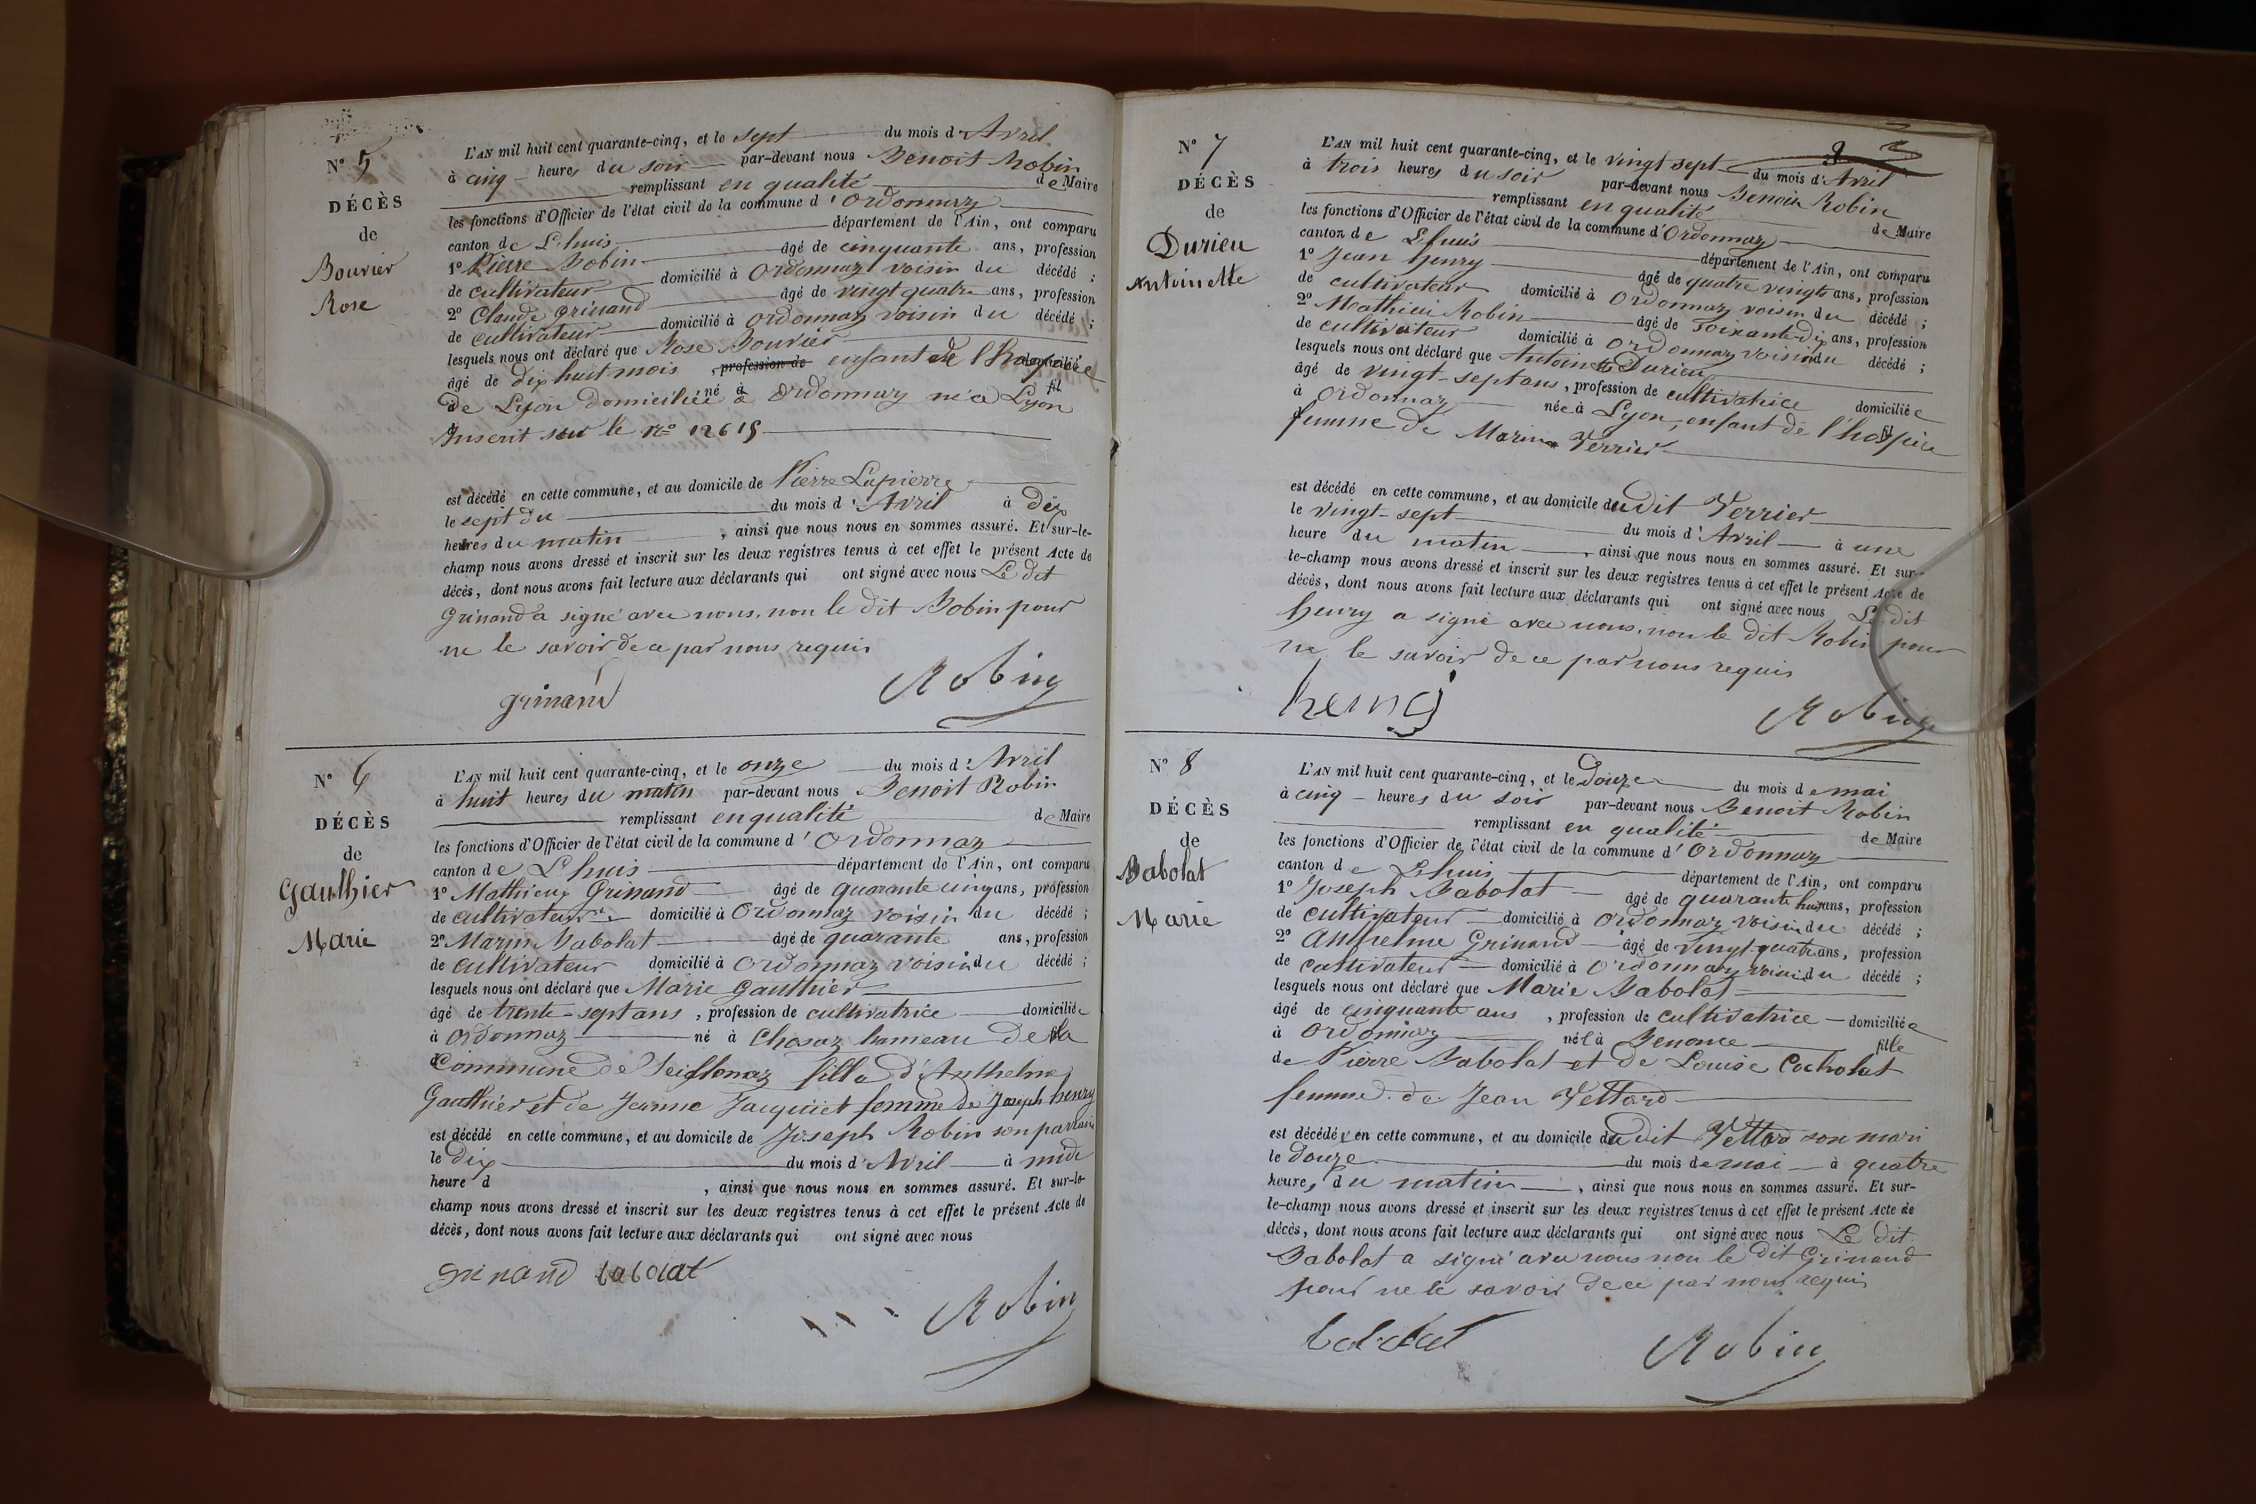 N° 5
DÉCÈS
de
Bouvier
Rose
L'AN mil huit cent quarante-cinq, et le sept du mois d'Avril
à cinq heures du soir par-devant nous Benoit Robin
remplissant en qualité de Maire
les fonctions d'Officier de l'état civil de la commune d'Ordonnaz
canton de Lhuis département de l'Ain, ont comparu
1° Pierre Robin âgé de cinquante ans, profession
de cultivateur domicilié à Ordonnaz voisin du décédé ;
2° Claude Grinand âgé de vingt quatre ans, profession
de cultivateur domicilié à Ordonnaz voisin du décédé ;
lesquels nous ont déclaré que Rose Bouvier
âgé de dix huit mois , profession de enfant de l'hospice
de Lyon domiciliée à Ordonnaz né à Lyon
Inscrit sou le N° 12615
est décédé en cette commune, et au domicile de Pierre Lapierre
le sept du du mois d'Avril à dix
heures du matin , ainsi que nous nous en sommes assuré. Et sur-le-
champ nous avons dressé et inscrit sur les deux registres tenus à cet effet le présent Acte de
décès, dont nous avons fait lecture aux déclarants qui ont signé avec nous Le dit
Grinand a signé avec nous, non le dit Robin pour
ne le savoir de ce par nous requis
grinand Robin
N° 6
DÉCÈS
de
Gauthier
Marie
L'AN mil huit cent quarante-cinq, et le onze du mois d'Avril
à huit heures du matin par-devant nous Benoit Robin
remplissant en qualité de Maire
les fonctions d'Officier de l'état civil de la commune d'Ordonnaz
canton de Lhuis département de l'Ain, ont comparu
1° Mathieu Grinand âgé de quarante cinq ans, profession
de cultivateur domicilié à Ordonnaz voisin du décédé ;
2° Marin Babolat âgé de quarante ans, profession
de cultivateur domicilié à Ordonnaz voisin du décédé ;
lesquels nous ont déclaré que Marie Gauthier
âgé de trente-sept ans , profession de cultivatrice domiciliée
à Ordonnaz né à Chosaz hameau de la
Commune de Seillonaz fille d'Anthelme
Gauthier et de Jeanne Jacquiet femme de Joseph henry
est décédé en cette commune, et au domicile de Joseph Robin son parrain
le dix du mois d'Avril à midi
heure d , ainsi que nous nous en sommes assuré. Et sur-le-
champ nous avons dressé et inscrit sur les deux registres tenus à cet effet le présent Acte de
décès, dont nous avons fait lecture aux déclarants qui ont signé avec nous
grinand babolat
Robin
N° 7
DÉCÈS
de
Durieu
Antoinette
L'AN mil huit cent quarante-cinq, et le vingt sept du mois d'Avril
à trois heures du soir par-devant nous Benoit Robin
remplissant en qualité de Maire
les fonctions d'Officier de l'état civil de la commune d'Ordonnaz
canton de Lhuis département de l'Ain, ont comparu
1° Jean henry âgé de quatre vingts ans, profession
de cultivateur domicilié à Ordonnaz voisin du décédé ;
2° Mathieu Robin âgé de soixante dix ans, profession
de cultivateur domicilié à Ordonnaz voisin du décédé ;
lesquels nous ont déclaré que Antoinette Durieu
âgé de vingt-sept ans , profession de cultivatrice domiciliée
à Ordonnaz née à Lyon, enfant de l'hospice
femme de Marin Verrier
est décédé en cette commune, et au domicile du dit Verrier
le vingt-sept du mois d'Avril à une
heure du matin , ainsi que nous nous en sommes assuré. Et sur-
le-champ nous avons dressé et inscrit sur les deux registres tenus à cet effet le présent Acte de
décès, dont nous avons fait lecture aux déclarants qui ont signé avec nous Le dit
henry a signé avec nous, non le dit Robin pour
ne le savoir de ce par nous requis
henry Robin
N° 8
DÉCÈS
de
Babolat
Marie
L'AN mil huit cent quarante-cinq, et le Douze du mois de mai
à cinq heures du soir par-devant nous Benoit Robin
remplissant en qualité de Maire
les fonctions d'Officier de l'état civil de la commune d'Ordonnaz
canton de Lhuis département de l'Ain, ont comparu
1° Joseph Babolat âgé de quarante huit ans, profession
de cultivateur domicilié à Ordonnaz voisin du décédé ;
2° Anthelme Grinand âgé de vingt-quatre ans, profession
de cultivateur domicilié à Ordonnaz voisin du décédé ;
lesquels nous ont déclaré que Marie Babolat
âgé de cinquante ans , profession de cultivatrice domiciliée
à Ordonnaz née à Benonce fille
de Pierre Babolat et de Louise Cocholat
femme de Jean Vettard
est décédée en cette commune, et au domicile du dit Vettard son mari
le Douze du mois de mai à quatre
heures du matin , ainsi que nous nous en sommes assuré. Et sur-
le-champ nous avons dressé et inscrit sur les deux registres tenus à cet effet le présent Acte de
décès, dont nous avons fait lecture aux déclarants qui ont signé avec nous Le dit
Babolat a signé avec nous non le dit Grinand
pour ne le savoir de ce par nous requis
babolat Robin